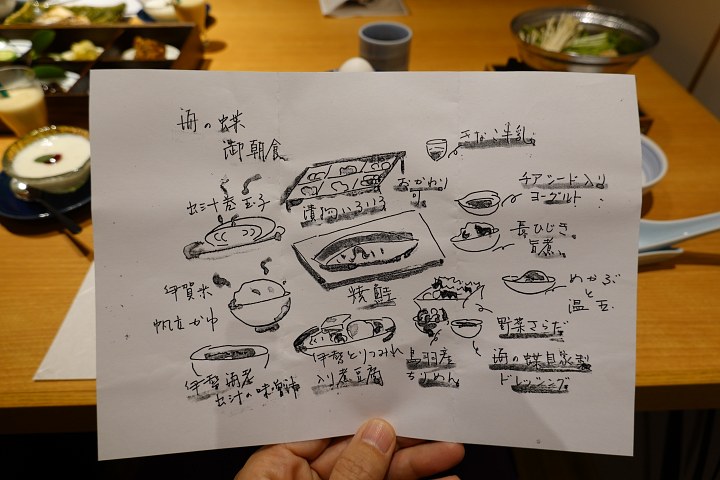 海の蝶
御朝食
きなこ牛乳
おかわり
可
漬物いろいろ
チアシード入り
ヨーグルト
出汁巻玉子
長ひじき
旨煮
伊賀米
帆立かゆ
焼鮭
めかぶ
と
温玉
野菜さらだ
伊勢とりつみれ
入り煮豆腐
鳥羽産
ちりめん
海の蝶自家製
ドレッシング
伊勢海老
出汁の味噌汁